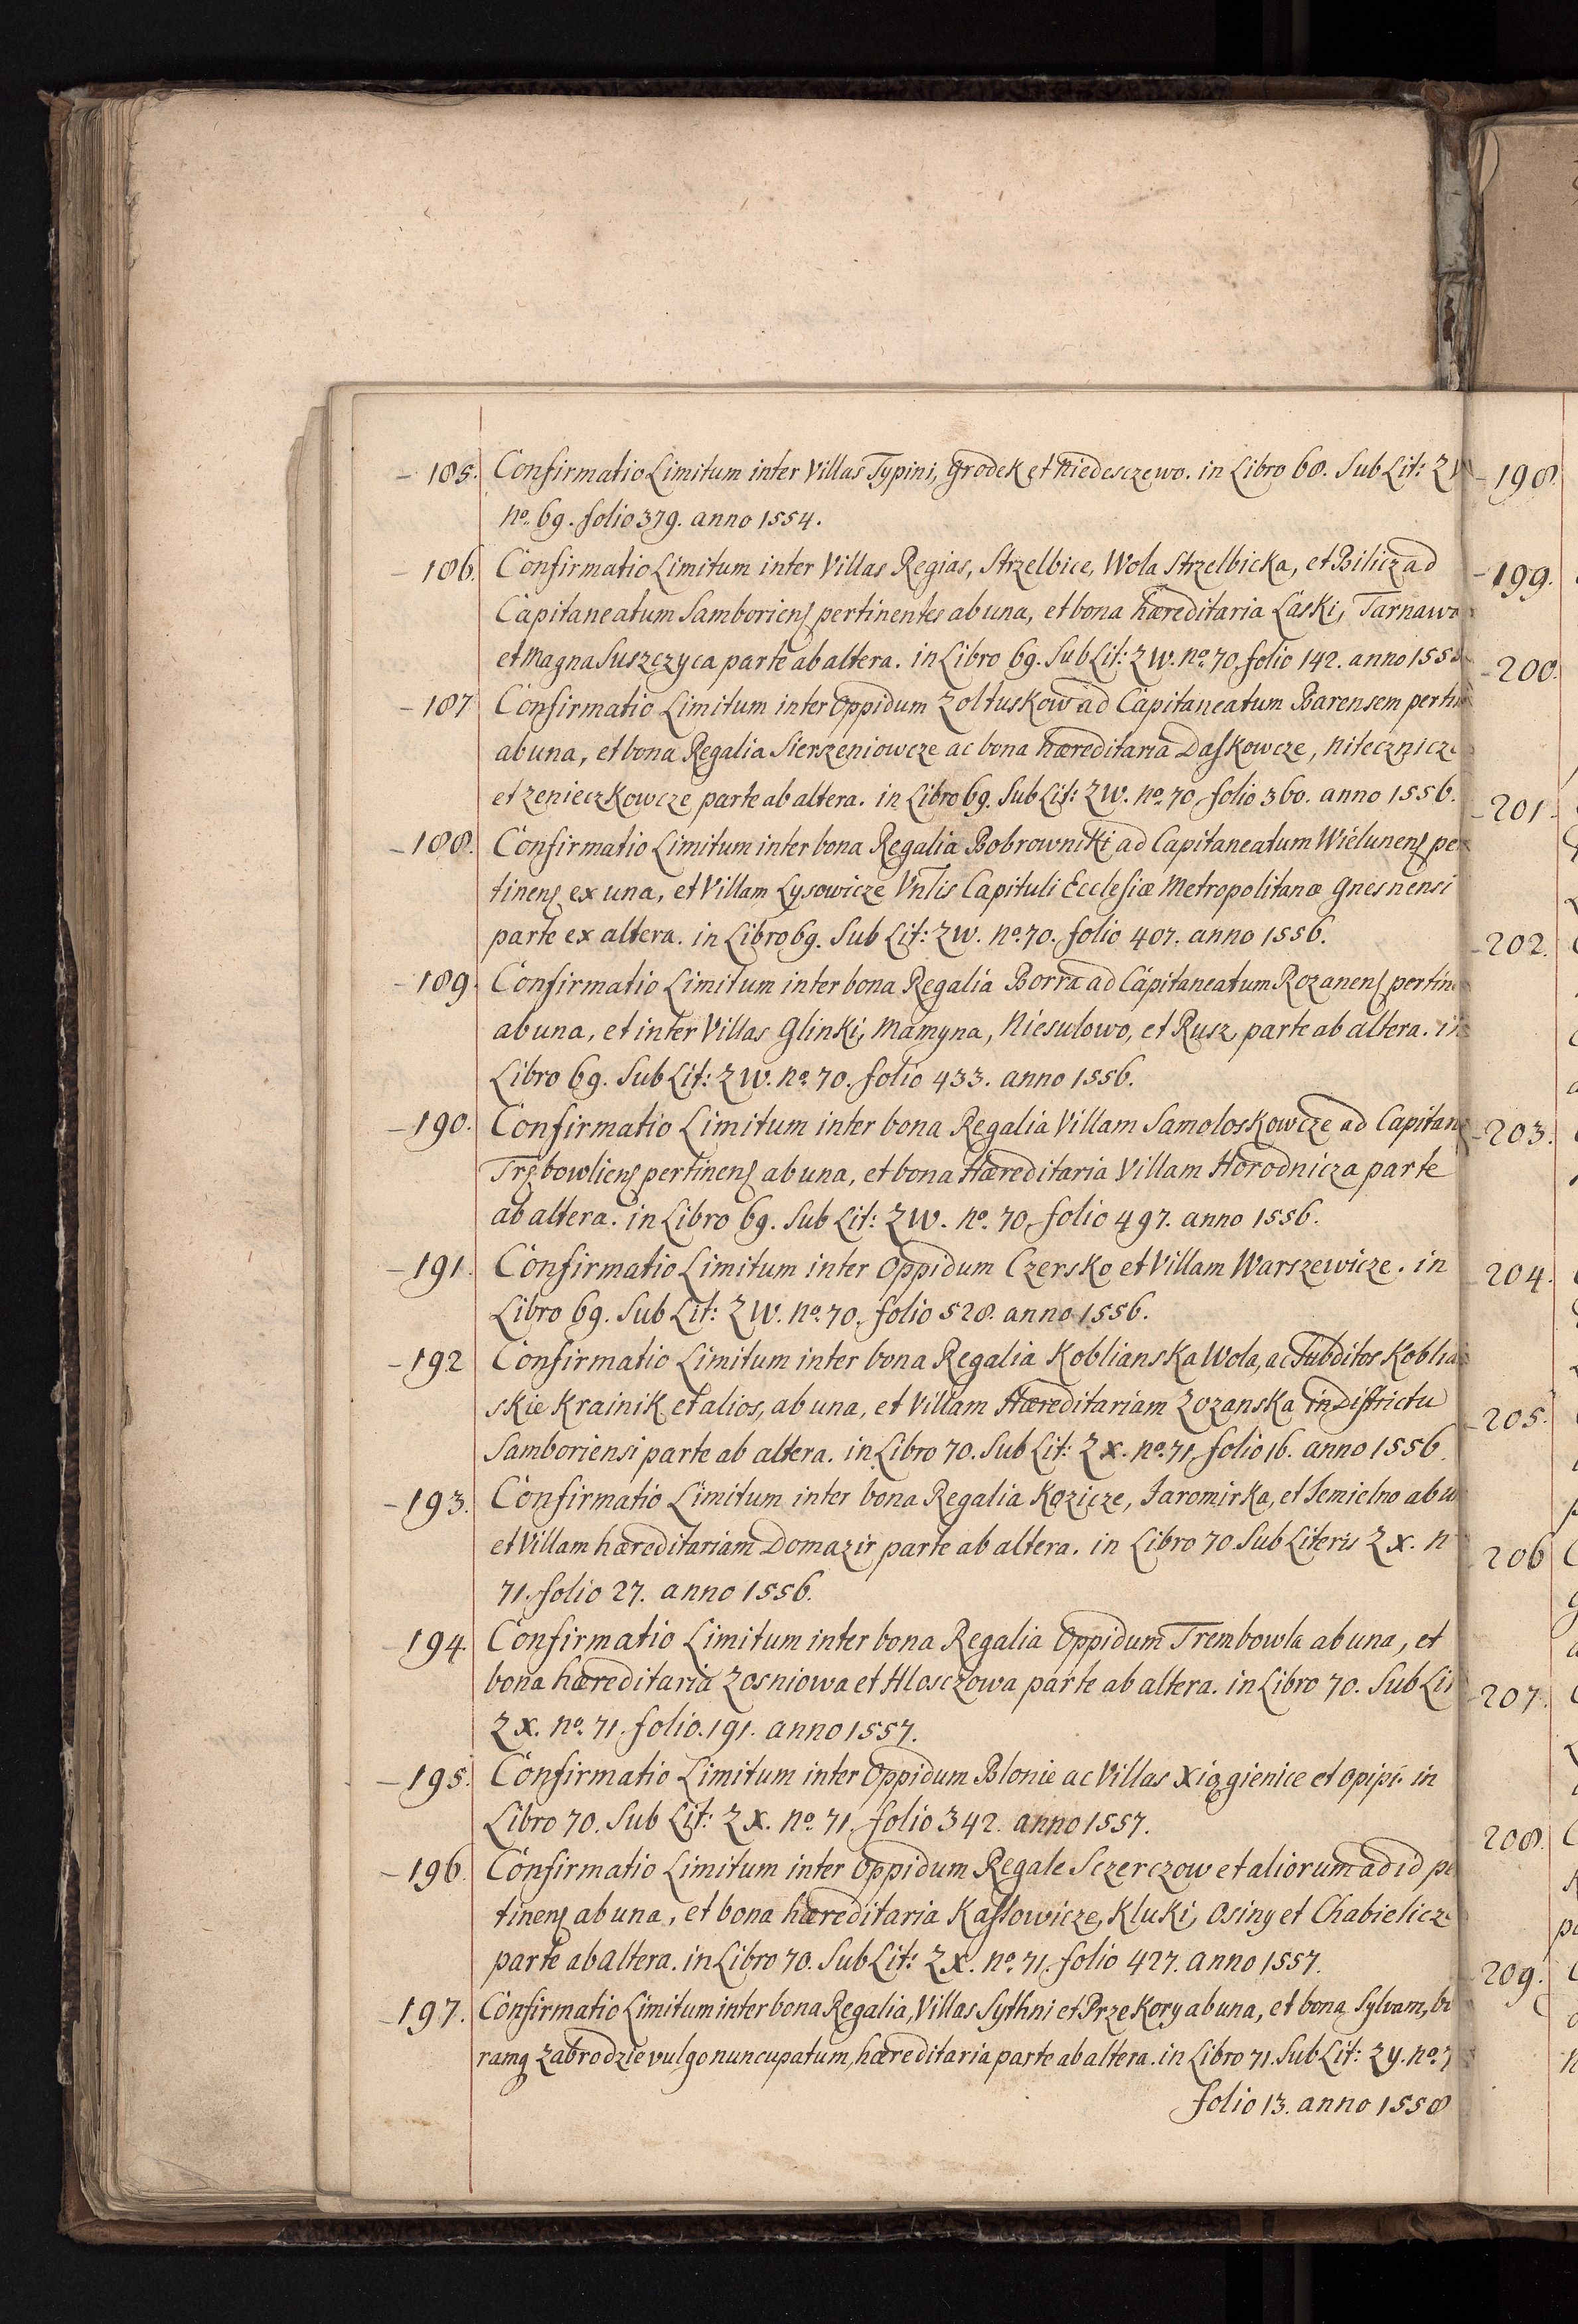 – 185. Confirmatio Limitum inter Villas Typini, Grodek et Niedesczewo. in Libro 68. Sub Lit: ZW
No. 69. folio 379. anno 1554.
– 186. Confirmatio Limitum inter Villas Regias, Strzelbice, Wola Strzelbicka, et Bilicz ad
Capitaneatum Samboriens pertinentes ab una, et bona hæreditaria Laski, Tarnawa
et Magna Suszczyca parte ab altera. in Libro 69. Sub Lit: ZW. No. 70. folio 142. anno 155
– 187 Confirmatio Limitum inter Oppidum Zoltuskow ad Capitaneatum Barensem pertin
ab una, et bona Regalia Sierzeniowcze ac bona hæreditaria Daskowcze, Nitecznicze
et Zenieczkowcze parte ab altera. in Libro 69. Sub Lit: ZW. No. 70. folio 360. anno 1556.
– 188. Confirmatio Limitum inter bona Regalia Bobrowniki ad Capitaneatum Wielunens per
tinens ex una, et Villam Lysowicze Vnlis Capituli Ecclesiæ Metropolitanæ Gnesnensi
parte ex altera. in Libro 69. Sub Lit: ZW. No. 70. folio 407. anno 1556.
– 189. Confirmatio Limitum inter bona Regalia Borra ad Capitaneatum Rozanens pertin
ab una, et inter Villas Glinki, Mamyna, Niesulowo, et Rusz, parte ab altera. in
Libro 69. Sub Lit: ZW. No. 70. folio 433. anno 1556.
– 190. Confirmatio Limitum inter bona Regalia Villam Samoloskowcze ad Capitan
Trębowliens pertinens ab una, et bona Hæreditaria Villam Horodnicza parte
ab altera. in Libro 69. Sub Lit: ZW. No. 70. folio 497. anno 1556.
– 191. Confirmatio Limitum inter Oppidum Czersko et Villam Warszewicze. in
Libro 69. Sub Lit: ZW. No. 70. folio 528. anno 1556.
– 192 Confirmatio Limitum inter bona Regalia Koblianska Wola, ac Subditos Koblian
skie Krainik et alios, ab una, et Villam Hæreditariam Zozanska in Districtu
Samboriensi parte ab altera. in Libro 70. Sub Lit: ZX. No. 71. folio 16. anno 1556.
– 193. Confirmatio Limitum inter bona Regalia Kozicze, Jaromirka, et Semielno ab u
et Villam hæreditariam Domazir parte ab altera. in Libro 70 Sub Literis ZX. N
71. folio 27. anno 1556.
194. Confirmatio Limitum inter bona Regalia Oppidum Trembowla ab una, et
bona hæreditaria Zosniowa et Hlosczowa parte ab altera. in Libro 70. Sub Lit
ZX. No. 71. folio. 191. anno 1557.
– 195. Confirmatio Limitum inter Oppidum Blonie ac Villas Xiązgienice et Opipi. in
Libro 70. Sub Lit: ZX. No. 71. folio 342. anno 1557.
– 196. Confirmatio Limitum inter Oppidum Regale Sczerczow et aliorum ad id pe
tinens ab una, et bona hæreditaria Kaszowicze, Kluki, Osiny et Chabielicze
parte ab altera. in Libro 70. Sub Lit: ZX. No. 71. folio 427. anno 1557.
– 197. Confirmatio Limitum inter bona Regalia, Villas Sythni et Przekory ab una, et bona Sylvam, bo
ramq Zabrodzie vulgo nuncupatum, hæreditaria parte ab altera. in Libro 71. Sub Lit: ZY. No. 7
folio 13. anno 1558
– 198.
– 199.
– 200.
– 201.
– 202.
– 203.
204.
– 205.
206
207.
208.
209.